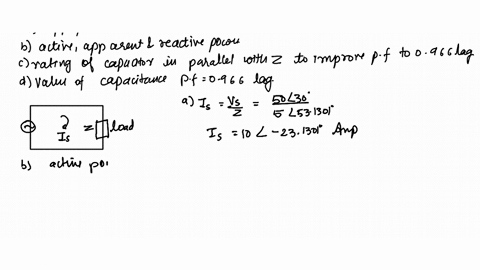 b) active, apparent & reactive power
c) rating of capacitor in parallel with Z to improve p.f to 0.966 lag
d) value of capacitance p.f = 0.966 lag
a) Is = Vs/Z = 50∠30°/5∠53.1301°
Is = 10 ∠ -23.1301° Amp
Is Z load
b) active poi